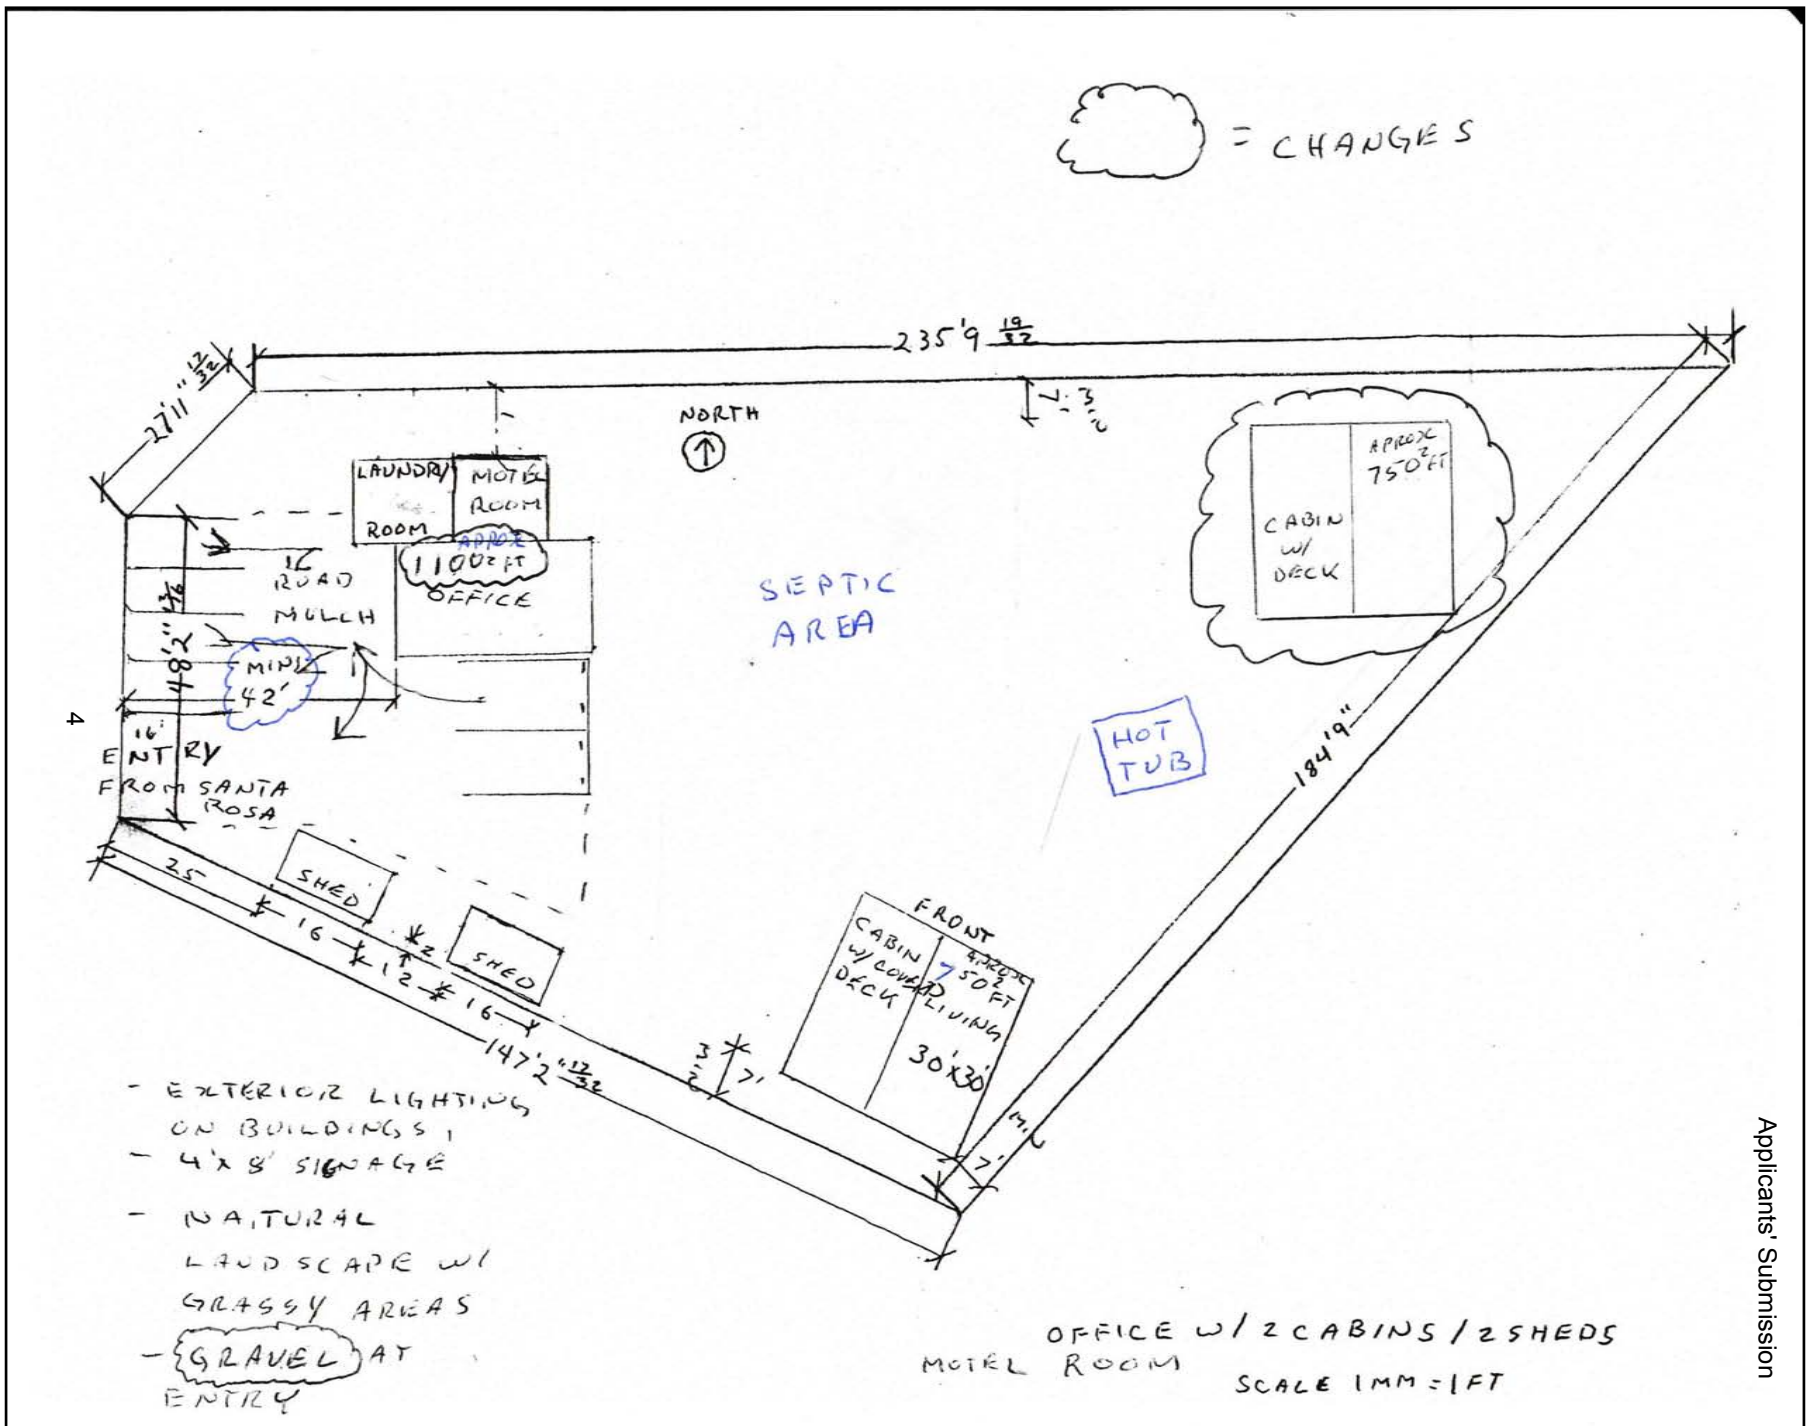 = CHANGES
235'9 19/32
27'11" 12/32
NORTH
LAUNDRY
ROOM
MOTEL
ROOM
APROX
1100 2 FT
OFFICE
16
ROAD
MULCH
48'2" 3/16
MIN
42'
16'
ENTRY
FROM SANTA
ROSA
SEPTIC
AREA
APROX
750 2 FT
CABIN
W/
DECK
HOT
TUB
184'9"
SHED
SHED
25
16
12
2
16
147'2" 12/32
7'
FRONT
CABIN
W/ COVERD
DECK
APROX
750 2 FT
LIVING
30'x30'
7'
- EXTERIOR LIGHTING
ON BUILDINGS,
- 4'x8' SIGNAGE
- NATURAL
LANDSCAPE W/
GRASSY AREAS
- GRAVEL AT
ENTRY
OFFICE W/ 2 CABINS / 2 SHEDS
MOTEL ROOM
SCALE 1MM = 1FT
4
Applicants' Submission